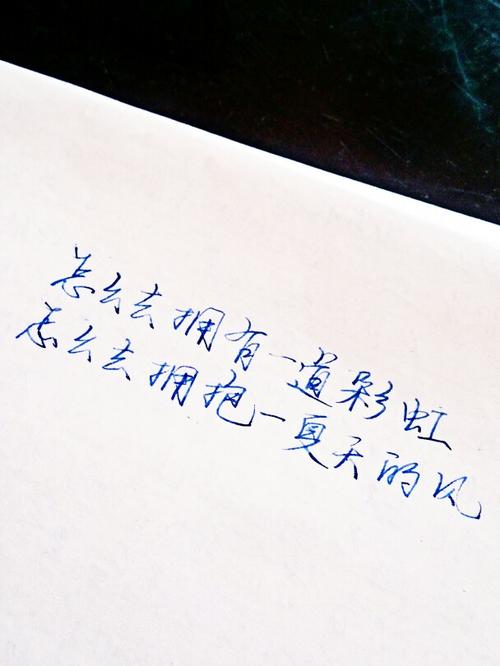 怎么去拥有一道彩虹
怎么去拥抱一夏天的风